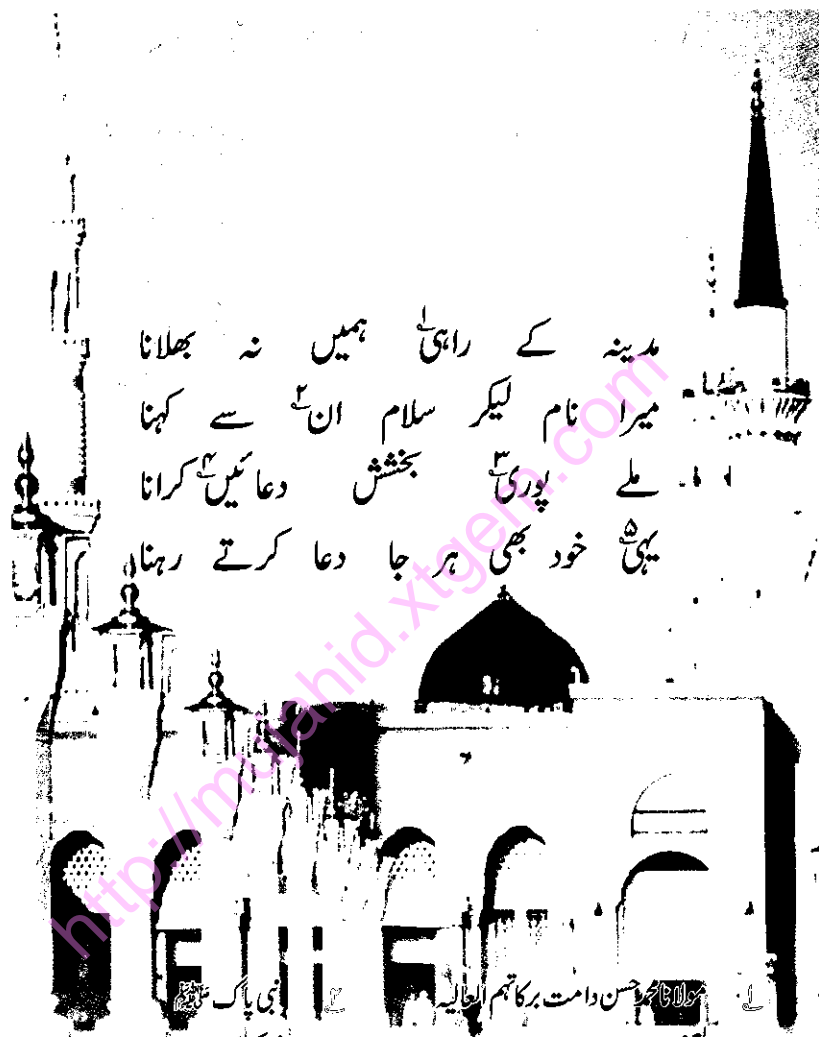 مدینہ کے راہی۱ ہمیں نہ بھلانا
میرا نام لیکر سلام ان۲ سے کہنا
ملے پوری۳ بخشش دعائیں۴ کرانا
یہی۵ خود بھی ہر جا دعا کرتے رہنا
http://mujahid.xtgem.com
۱ مولانا محمد حسن دامت برکاتہم العالیہ ۲ نبی پاک ﷺ